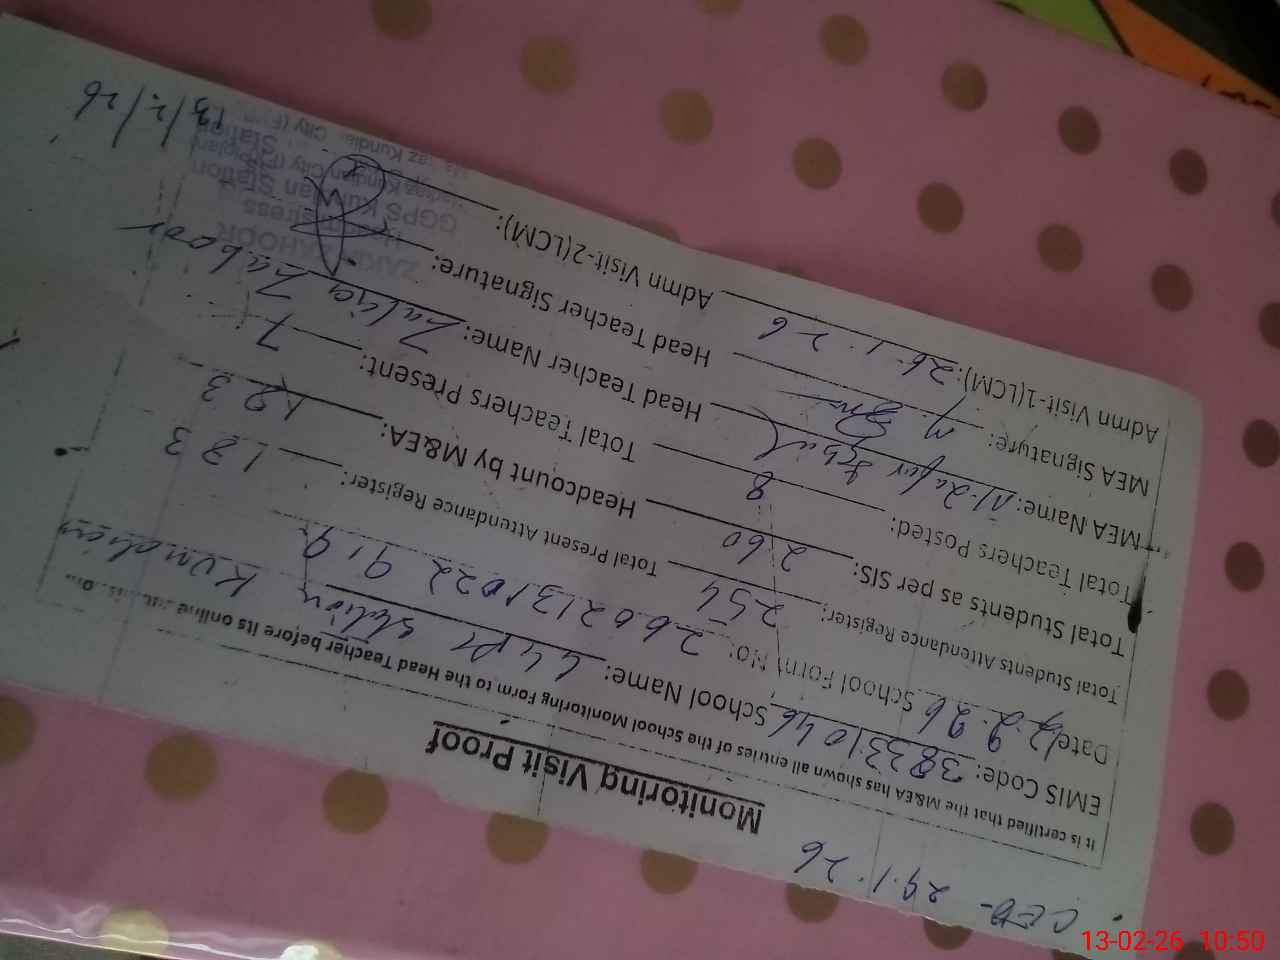 CEO- 29.1.26
Monitoring Visit Proof
It is certified that the M&EA has shown all entries of the School Monitoring Form to the Head Teacher before its online
EMIS Code: 38331046 School Name: GGPS Station Kundian
Date: 12.2.26 School Form No: 260213102291
Total Students Attendance Register: 254 Total Present Attendance Register: 183
Total Students as per SIS: 260 Headcount by M&EA: 183
Total Teachers Posted: 8 Total Teachers Present: 7
MEA Name: M. Zafar Iqbal Head Teacher Name: Zakia Zahoor
MEA Signature: Head Teacher Signature:
Admn Visit-1(LCM): 26.1.26 Admn Visit-2(LCM):
13/2/26
ZAKIA ZAHOOR
Headmistress
GGPS Kundian Station
13-02-26 10:50